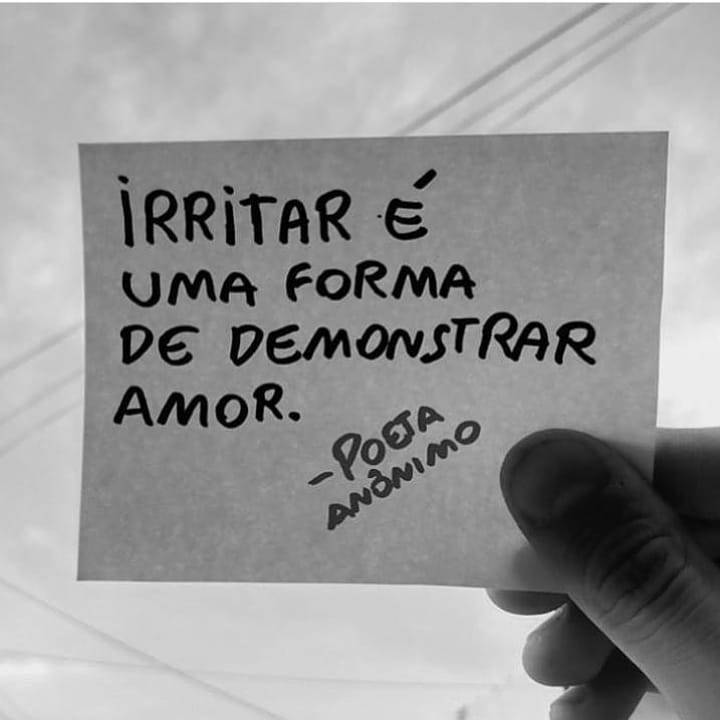 IRRITAR É
UMA FORMA
DE DEMONSTRAR
AMOR.
-POETA
ANÔNIMO